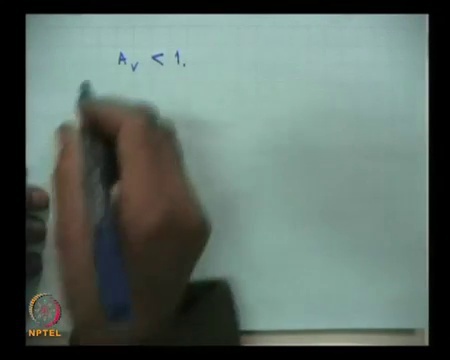 A_v < 1.
NPTEL